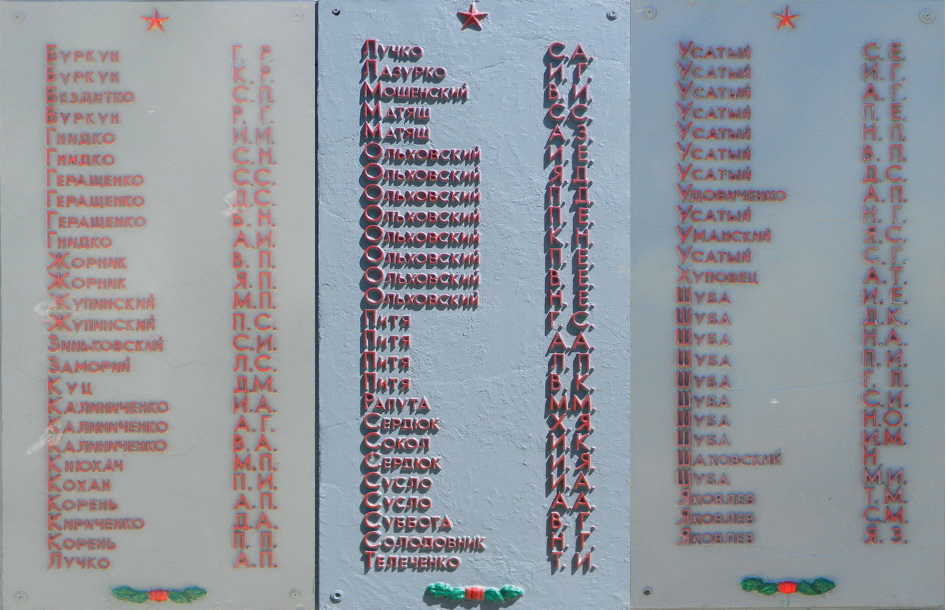 Буркун Г. Р.
Буркун К. Р.
Бездитко С. П.
Буркун Р. Г.
Гнидко И. И.
Гнидко С. Н.
Геращенко С. С.
Геращенко Д. С.
Геращенко В. Н.
Гнидко А. И.
Жорник В. П.
Жорник Я. П.
Жупинский М. П.
Жупинский П. С.
Зиньковский С. И.
Заморий Л. С.
Куц Д. М.
Калиниченко И. А.
Калиниченко А. Г.
Калиниченко В. А.
Кнюхач М. П.
Кохан П. И.
Корень А. П.
Кириченко Д. А.
Корень П. П.
Лучко А. П.
Лучко С. Д.
Лазурко И. Г.
Мошенский В. И.
Матяш С. С.
Матяш А. З.
Ольховский И. Е.
Ольховский Я. Д.
Ольховский П. Д.
Ольховский П. Е.
Ольховский К. Н.
Ольховский П. Е.
Ольховский В. Е.
Ольховский Н. Е.
Питя Г. С.
Питя А. А.
Питя Л. П.
Питя В. К.
Рапута М. М.
Сердюк Х. Я.
Сокол И. К.
Сердюк И. Я.
Сусло И. А.
Сусло А. Д.
Суббота В. Г.
Солодовник Н. Г.
Телеченко Т. И.
Усатый С. Е.
Усатый М. Г.
Усатый А. Г.
Усатый П. Е.
Усатый Н. П.
Усатый В. П.
Усатый Д. С.
Удовиченко А. П.
Усатый Н. Г.
Уманский Я. С.
Усатый С. Г.
Хуповец А. Т.
Шуба И. Г.
Шуба Д. К.
Шуба Н. А.
Шуба П. И.
Шуба Г. П.
Шуба С. И.
Шуба Н. О.
Шуба И. М.
Шаховский Н.
Шуба М. И.
Яковлев Т. М.
Яковлев С. М.
Яковлев Я. З.